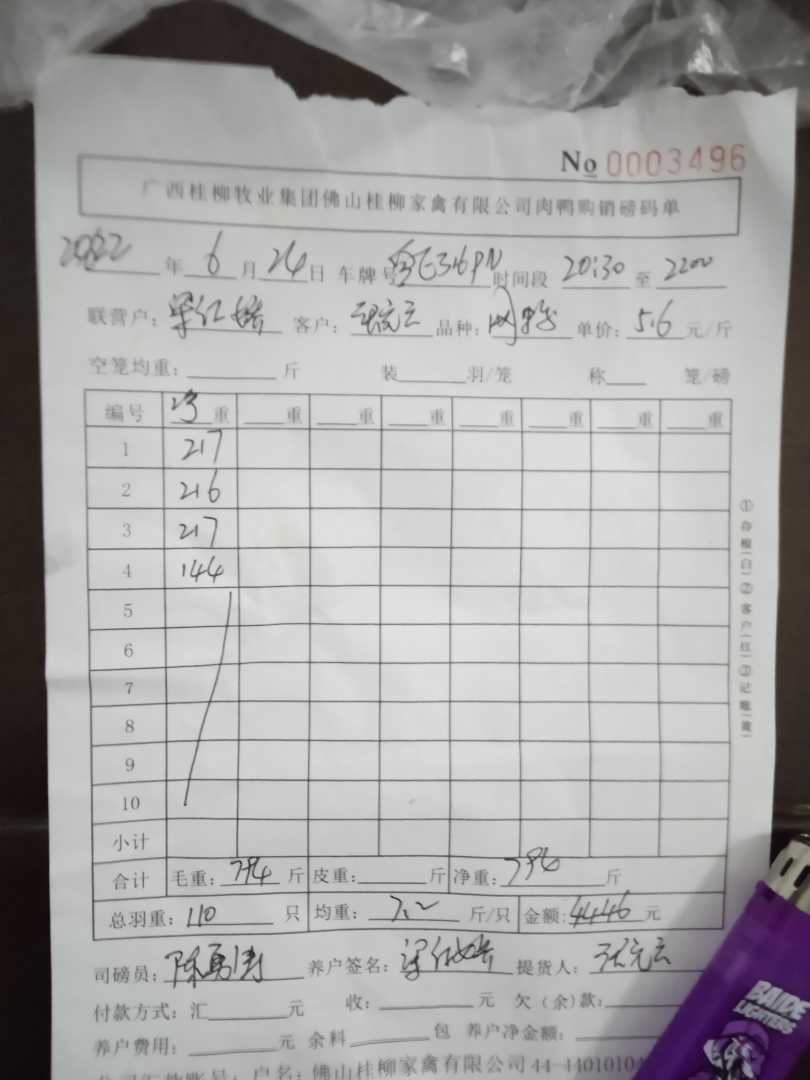 No 0003496
广西桂柳牧业集团佛山桂柳家禽有限公司肉鸭购销磅码单
2022年 6 月 24 日 车牌号 E36PN 时间段 20:30 至 2200
联营户: 梁红 客户: 张元云 品种: 单价: 5.6 元/斤
空笼均重: 斤 装 羽/笼 称 笼/磅
编号 净重 重 重 重 重 重 重 重
1 217
2 216
3 217
4 144
5
6
7
8
9
10
小计
合计 毛重: 794 斤 皮重: 斤 净重: 794 斤
总羽重: 110 只 均重: 7.2 斤/只 金额: 4446 元
司磅员: 陈勇涛 养户签名: 梁红 提货人: 张元云
付款方式: 汇 元 收: 元 欠(余)款:
养户费用: 元 余料 包 养户净金额:
户名: 佛山桂柳家禽有限公司 44-4401010
①存根(白)②客户(红)③记账(黄)
BAIDE
LIGHTERS